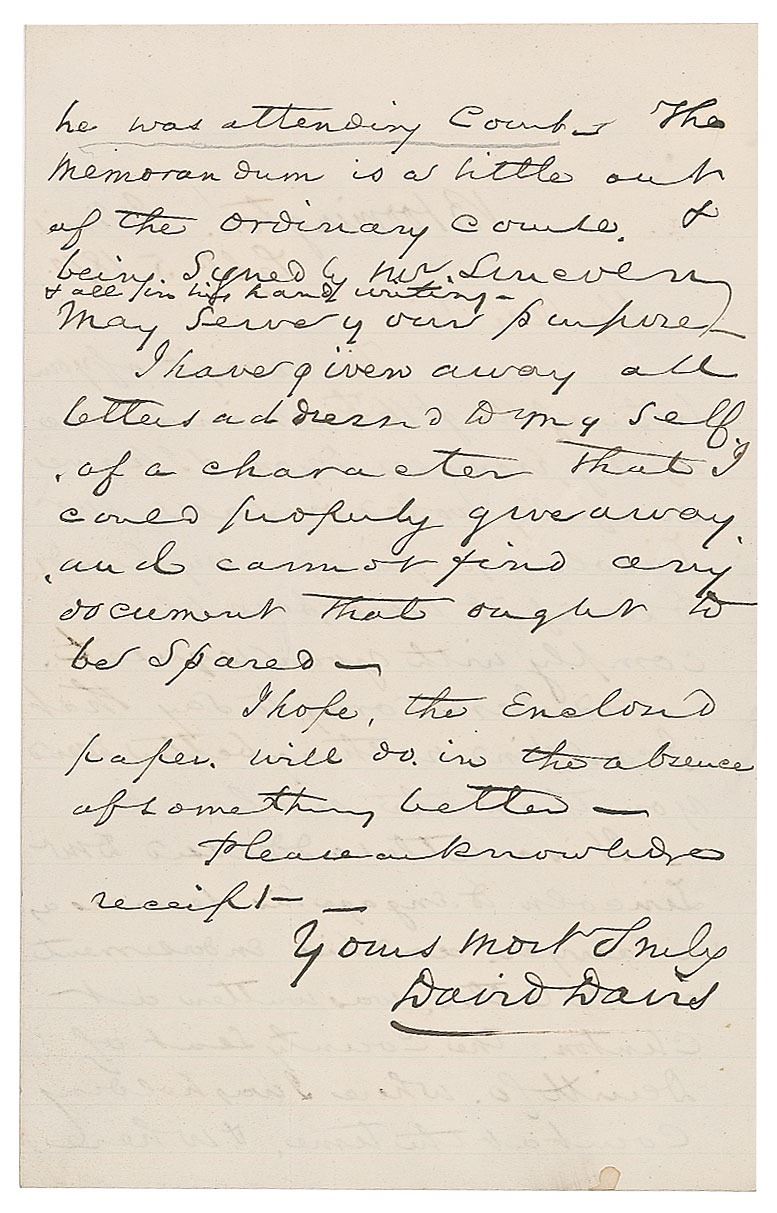 he was attending Court – The
Memorandum is a little out
of the ordinary course, &
being signed by Mr. Lincoln
& all in his hand writing –
May serve your purpose –
I have given away all
letters addressed to my self,
of a character that I
could properly give away,
and cannot find any
document that ought to
be spared –
I hope, the enclosed
paper. will do. in the absence
of something better –
Please acknowledge
receipt –
Yours most Truly
David Davis